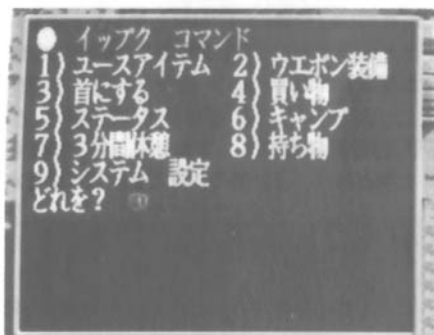 イップク コマンド
1) ユースアイテム 2) ウエポン装備
3) 首にする 4) 買い物
5) ステータス 6) キャンプ
7) 3分間休憩 8) 持ち物
9) システム 設定
どれを?